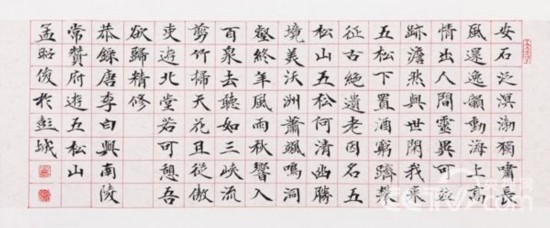 安石泛溟渤獨嘯長
風還逸韻動海上高
情出人間靈異可並
跡澹然與世閒我來
五松下置酒窮躋攀
征古絕遺老因名五
松山五松何清幽勝
境美沃洲蕭颯鳴洞
壑終年風雨秋響入
百泉去聽如三峽流
剪竹掃天花且從傲
吏遊北堂若可憩吾
欲歸精修
恭錄唐李白與南陵
常贊府遊五松山
孟昭俊於彭城